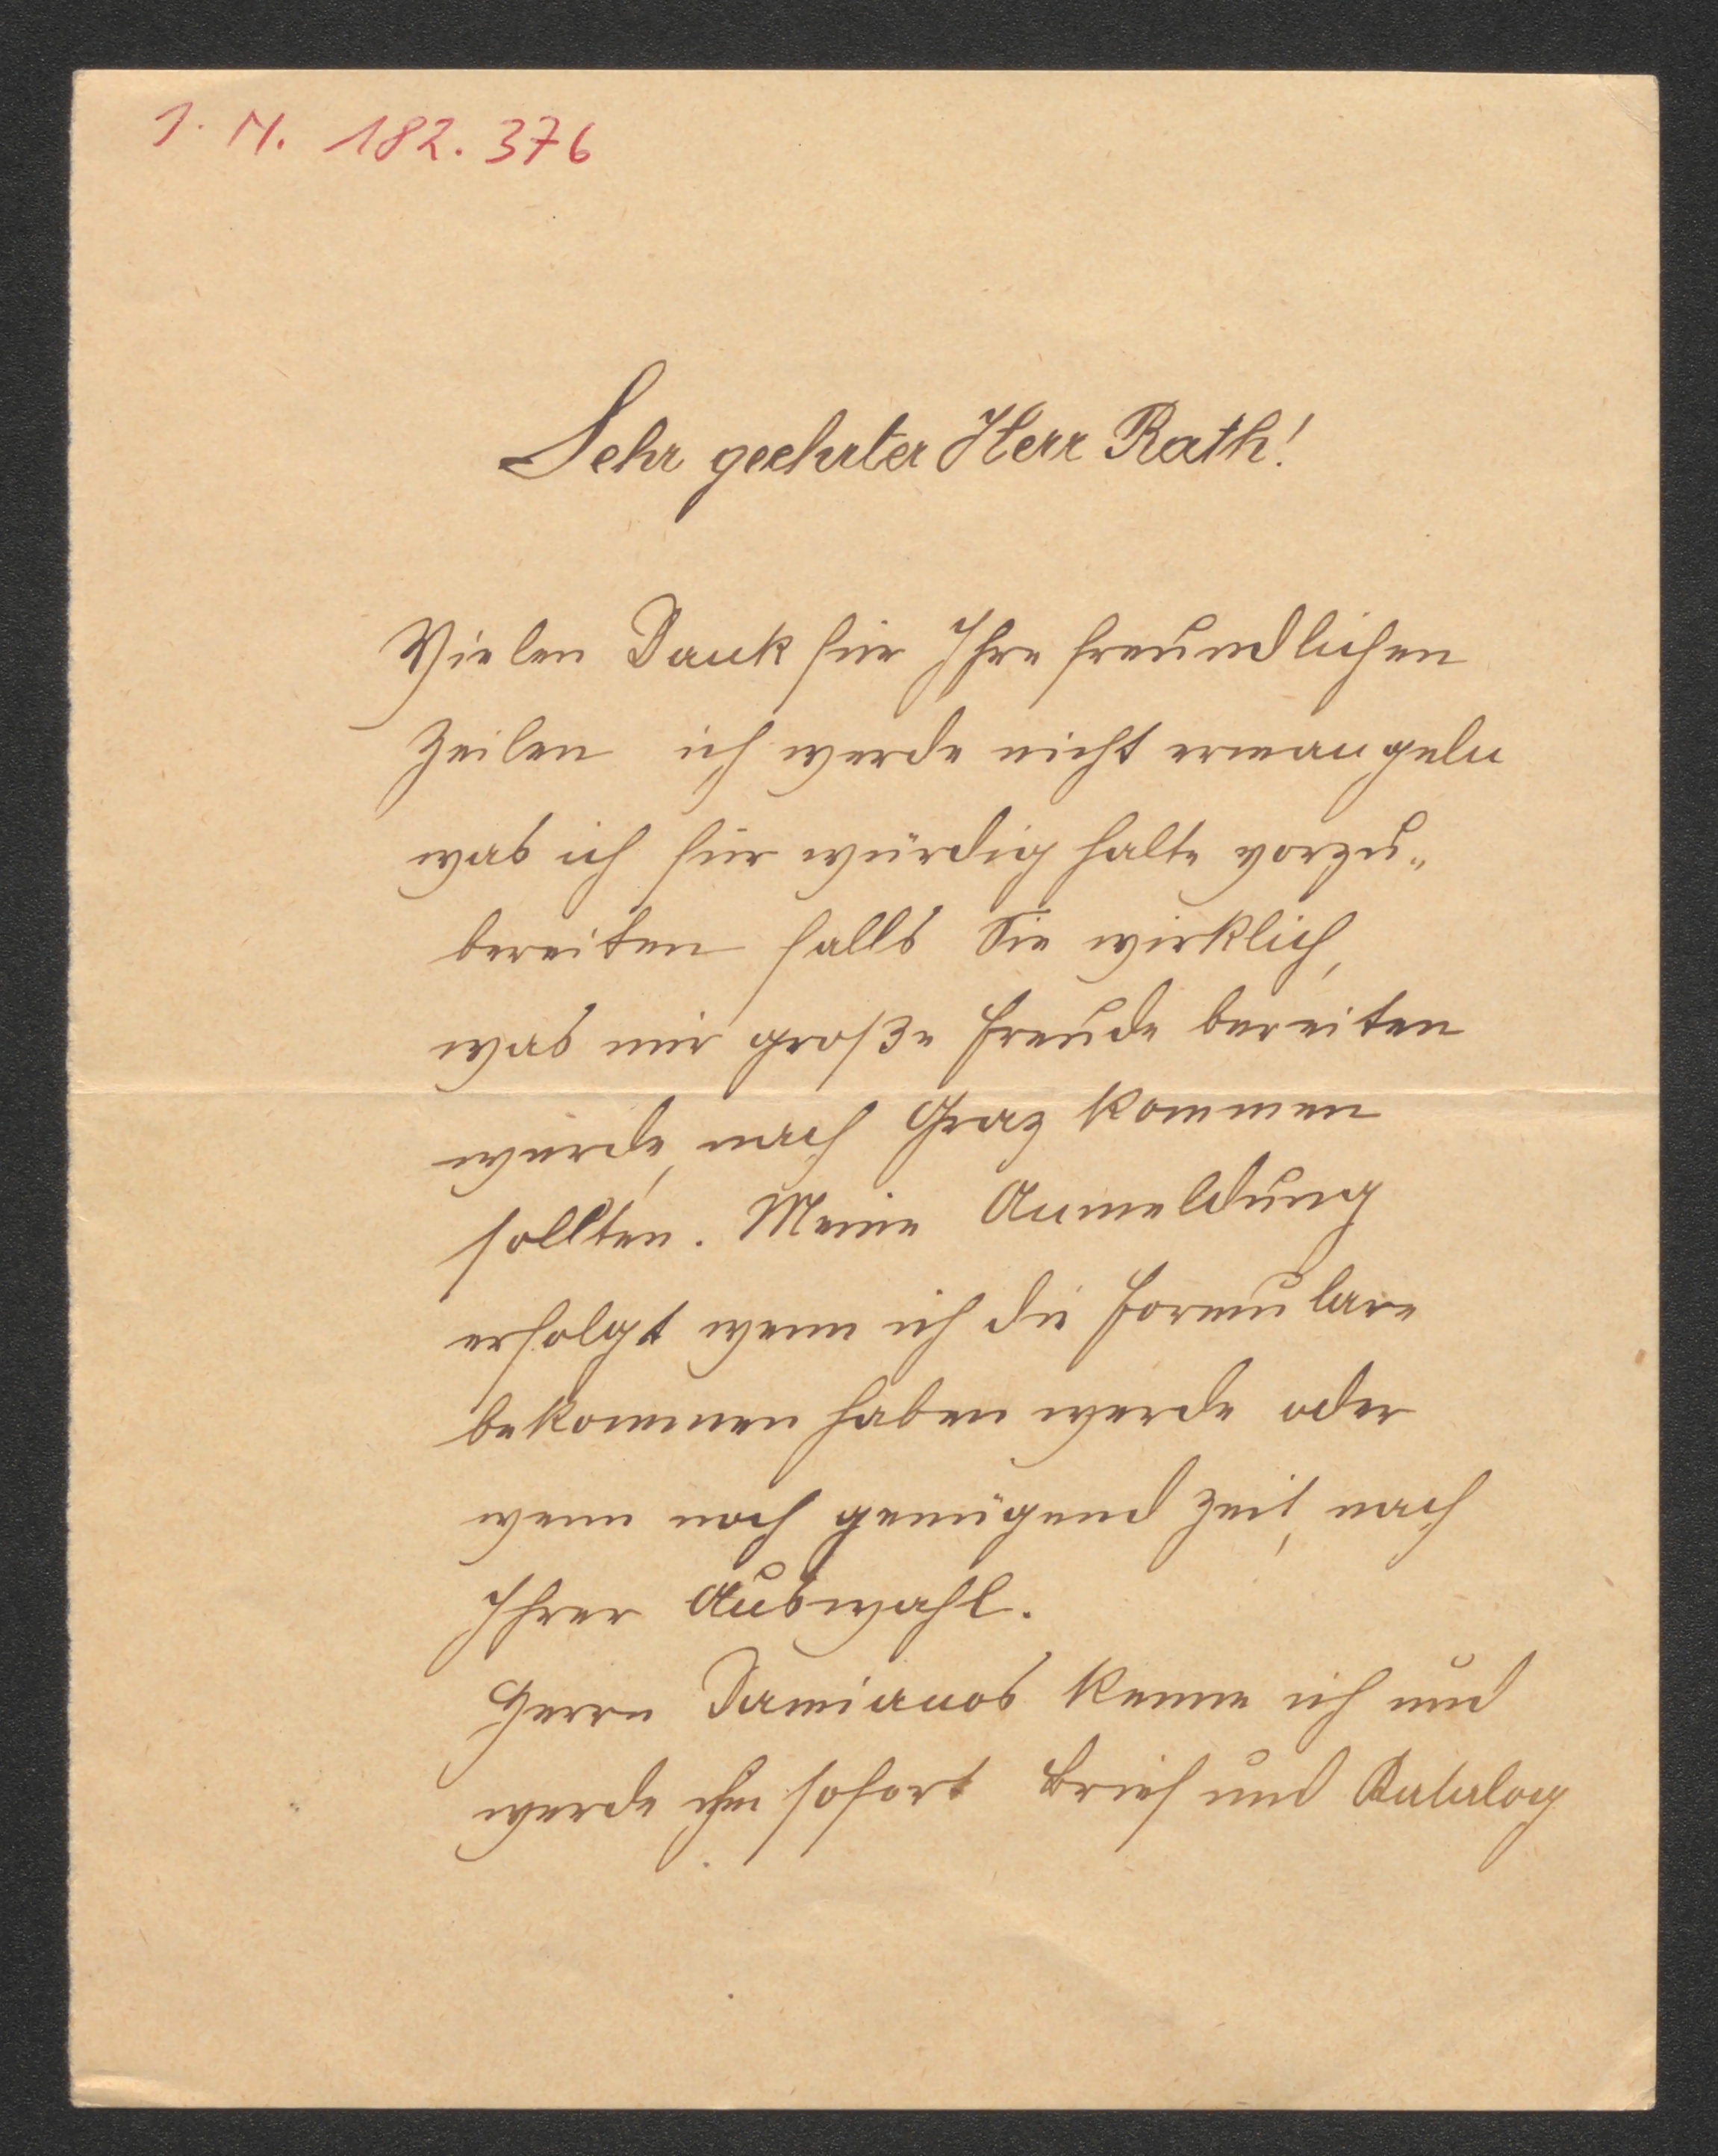 I. N. 182.376
Sehr geehrter Herr Rath!
Vielen Dank für Ihre freundlichen
Zeilen ich werde nicht ermangeln
was ich für würdig halte vorzu-
bereiten falls Sie wirklich,
was mir große Freude bereiten
würde, nach Graz kommen
sollten. Meine Anmeldung
erfolgt wenn ich die Formulare
bekommen haben werde oder
wenn noch genügend Zeit, nach
Ihrer Auswahl.
Herrn Damianos kenne ich und
werde ihm sofort Brief und Katalog